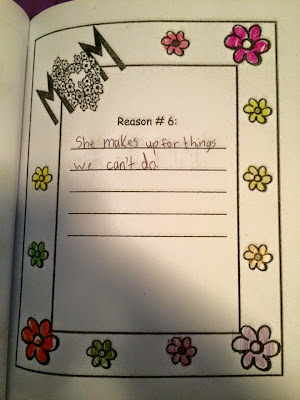 MOM
Reason # 6:
She makes up for things
we can't do.